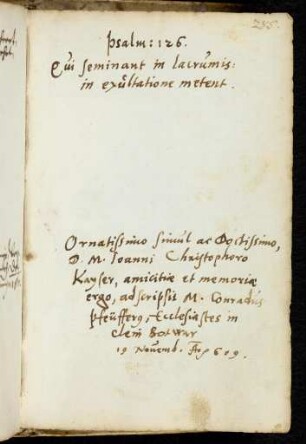 255.
Psalm: 126.
Qui seminant in lacrumis:
in exultatione metent.
Ornatissimo simul ac Doctissimo,
D. M. Ioanni Christophoro
Kayser, amicitiæ et memoriæ
ergo, adscripsit M. Conradus
Pfeüffer, Ecclesiastes in
19 Novemb. Aõ 609.